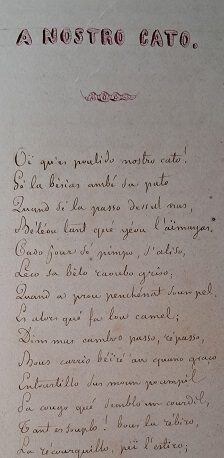 A NOSTRO CATO.
Oï qu'es poulido nostro cato!
Sé la bésias ambé sa pato
Quand sé la passo dessul nas,
Béléou tant que yéou l'aïmayas.
Cado jour sé pimpo, s'aliso,
Léco sa bèlo raoubo griso;
Quand a prou penchénat soun pel
Es alors qué fa lou camel;
Dins mas cambos passo, répasso,
Bous carrès béïré an quano graço
Entourtillo sus moun
Sa cougo qué semblo un courdil,
Tant es souplo! bous la rébiro,
La récourquillo, péï l'estiro;